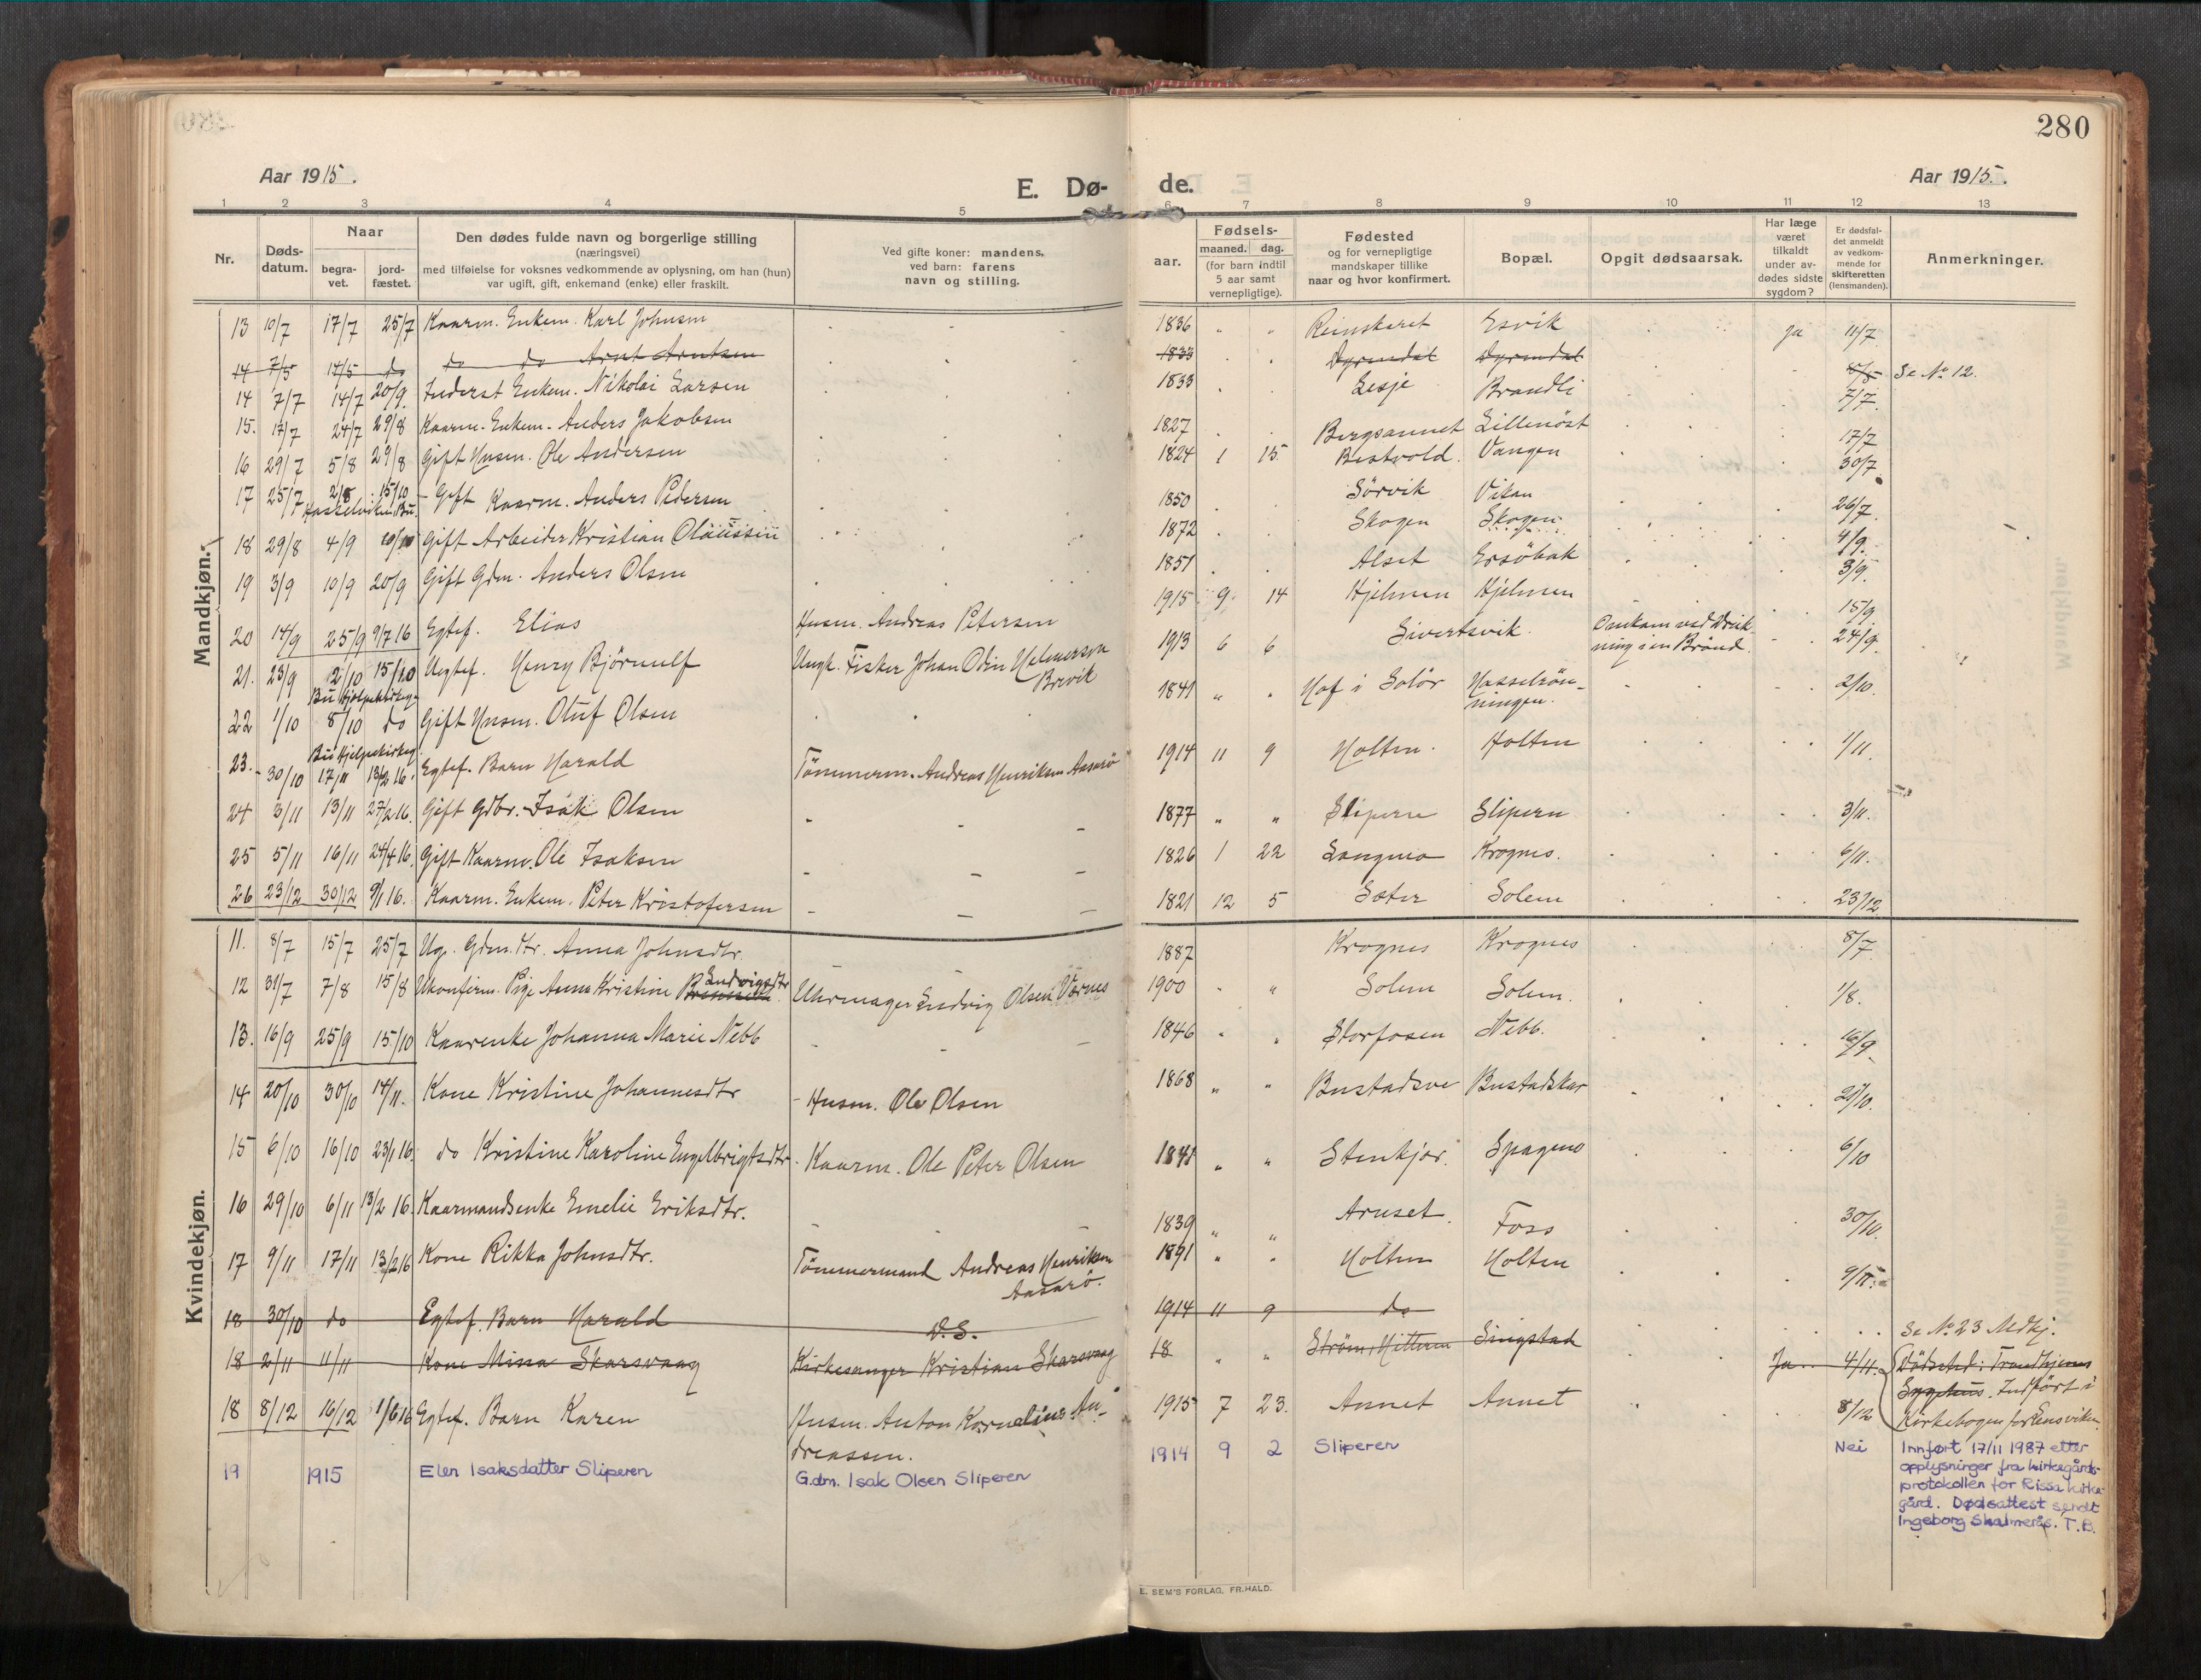 280
Aar 1915.
E. Dø- de.
Aar 1915.
1 2 3 4 5 6 7 8 9 10 11 12 13
Nr.
Døds-
datum.
Naar
begra-
vet.
jord-
fæstet.
Den dødes fulde navn og borgerlige stilling
(næringsvei)
med tilføielse for voksnes vedkommende av oplysning, om han (hun)
var ugift, gift, enkemand (enke) eller fraskilt.
Ved gifte koner: mandens,
ved barn: farens
navn og stilling.
Fødsels-
aar.
maaned. dag.
(for barn indtil
5 aar samt
vernepligtige).
Fødested
og for vernepligtige
mandskaper tillike
naar og hvor konfirmert.
Bopæl.
Opgit dødsaarsak.
Har læge
været
tilkaldt
under av-
dødes sidste
sygdom?
Er dødsfal-
det anmeldt
av vedkom-
mende for
skifteretten
(lensmanden).
Anmerkninger.
Mandkjøn.
13 10/7 17/7 25/7 Kaarm. Enkem. Karl Johnsen 1836 " " Reinskaret Esvik Ja 11/7
14 7/5 14/5 do do do Arnt Arntsen 1833 Dyrendal Dyrendal 8/5 Se No 12.
14 7/7 14/7 20/9 Inderst Enkem. Nikolai Larsen 1833 Lesje Brandli 7/7.
15. 17/7 24/7 29/8 Kaarm. Enkem. Anders Jakobsen 1827 Bergsaunet Lillenöst 17/7
16 29/7 5/8 29/8 Gift Husm. Ole Andersen 1824 1 15 Bestvold. Vangen 30/7
17 25/7 2/8 15/10 Gift Kaarm. Anders Pedersen 1850 Sörvik Vikan 26/7
18 29/8 4/9 10/10 Gift Arbeider Kristian Olaussen 1872 Skogen Skogen 4/9.
19 3/9 10/9 20/9 Gift Gdm. Anders Olsen 1851 Alset Ersöbak 3/9.
20 14/9 25/9 9/7 16 Egtef. Elias Husm. Andreas Petersen 1915 9 14 Hjelmen Hjelmen 15/9
21. 23/9 2/10 15/10 Uegtef. Henry Björnulf Ungk. Fisker Johan Odin Helmerson
Brevik 1913 6 6 Sivertsvik. Omkom ved Druk-
ning i en Brönd. 24/9.
Bu Hjelpekirkeg.
22 1/10 8/10 do Gift Husm. Oluf Olsen 1841 " " Hof i Solör Hasselrön-
ningen. 2/10.
Bu Hjelpekirkeg.
23. 30/10 17/11 13/2 16. Egtef. Barn Harald Tömmerm. Andreas Henriksen Aasarö 1914 11 9 Holten. Holten 1/11.
24 3/11 13/11 27/2 16. Gift Gdbr. Isak Olsen 1877 " " Slipern Slipern 3/11.
25 5/11 16/11 24/4 16. Gift Kaarm. Ole Isaksen 1826 1 22 Krognes. 6/11.
26 23/12 30/12 9/1 16. Kaarm. Enkem. Peter Kristofersen 1821 12 5 Sæter Solem 23/12
Kvindekjøn.
11. 8/7 15/7 25/7 Ug. Gdm. dtr. Anna Johnsdtr. 1887 Krognes Krognes 8/7
12 31/7 7/8 15/8 Ukonfirm. Pige Anna Kristine Ludvigsdtr Uhrmager Ludvig Olsen Vörnes 1900 " " Solem Solem. 1/8.
13. 16/9 25/9 15/10 Kaarenke Johanna Marie Nebb 1846 " " Storfosen Nebb. 16/9.
14 20/10 30/10 14/11. Kone Kristine Johannesdtr Husm. Ole Olsen 1868 " " Bustadsve Bustadskar 21/10.
15 6/10 16/10 23/1 16. do Kristine Karoline Engelbrigtsdtr. Kaarm. Ole Peter Olsen 1841 " " Stenkjær. Spagmo 6/10
16 29/10 6/11 13/2 16. Kaarmandsenke Emelie Eriksdtr. 1839 " " Aruset. Foss 30/10.
17 9/11 17/11 13/2 16 Kone Rikka Johnsdtr. Tömmermand Andreas Henriksen
Aasarö. 1891 " " Holten Holten 9/11.
18 30/10 do Egtef. Barn Harald D.S. 1914 11 9 do Se No 23 Mdkj.
18 2/11 11/11 Kone Mina Skarsvaag Kirkesanger Kristian Skarsvaag 18 " " Ström, Hitteren Singstad Ja 4/11. Dödssted: Trondhjems
Sygehus. Indfört i
Kirkebogen for Stensviken
18 8/12 16/12 1/6 16 Egtef. Barn Karen Husm. Anton Kornelius An-
dreassen. 1915 7 23. Annet Annet 8/12
19 1915 Elen Isaksdatter Sliperen G.dm. Isak Olsen Sliperen 1914 9 2 Sliperen Nei Innført 17/11 1987 etter
opplysninger fra kirkegårds-
protokollen for Rissa kirke-
gård. Dødsattest sendt
Ingeborg Skalmerås. T.B.
E. SEM'S FORLAG, FR.HALD.